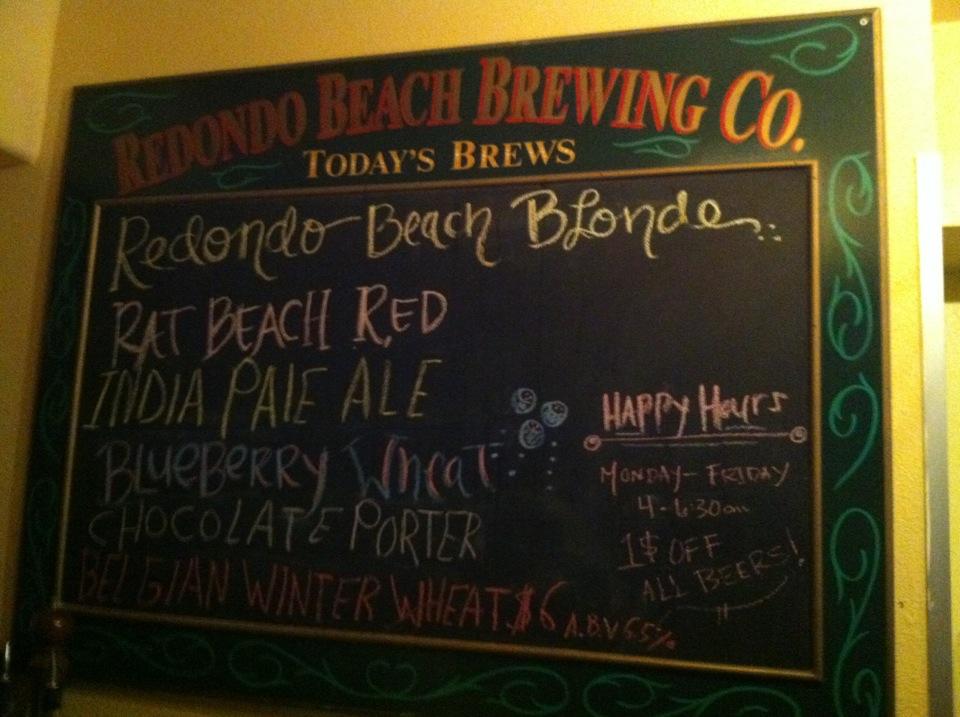 REDONDO BEACH BREWING CO.
TODAY'S BREWS
Redondo Beach Blonde
RAT BEACH RED
INDIA PALE ALE
BLUEBERRY Wheat
CHOCOLATE PORTER
BELGIAN WINTER WHEAT $6 A.B.V 6.5%
HAPPY Hours
MONDAY-FRIDAY
4-6:30pm
1$ OFF
ALL BEERS!